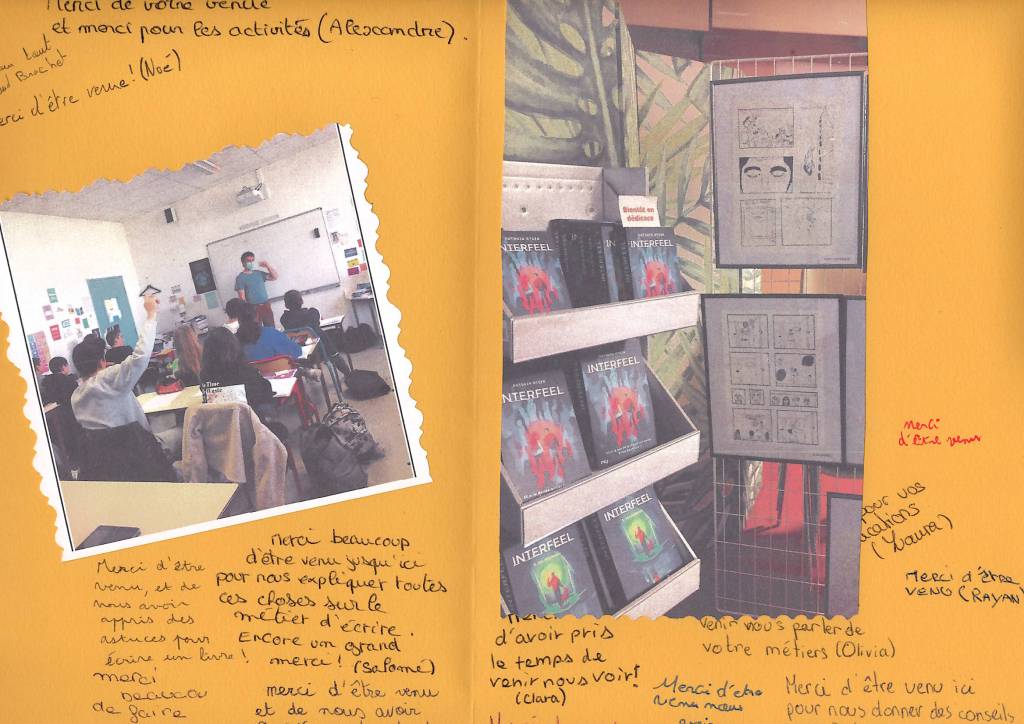 Merci de votre venue
et merci pour les activités (Alexandre).
haut
Brochet
merci d'être venue! (Noé)
Bientôt en
dédicace
INTERFEEL
INTERFEEL
INTERFEEL
INTERFEEL
INTERFEEL
INTERFEEL
Merci
d'être venu
pour vos
(Laura)
Merci d'être
venu (RAYAN)
Merci d'être
venu, et de
nous avoir
appris des
astuces pour
écrire un livre!
merci
beaucou
de faire
Merci beaucoup
d'être venu jusqu'ici
pour nous expliquer toutes
ces choses sur le
métier d'écrire.
Encore un grand
merci! (Salomé)
merci d'être venu
et de nous avoir
Merci
d'avoir pris
le temps de
venir nous voir!
(Clara)
venir nous parler de
votre métiers (Olivia)
Merci d'être
venu nous
Merci d'être venu ici
pour nous donner des conseils